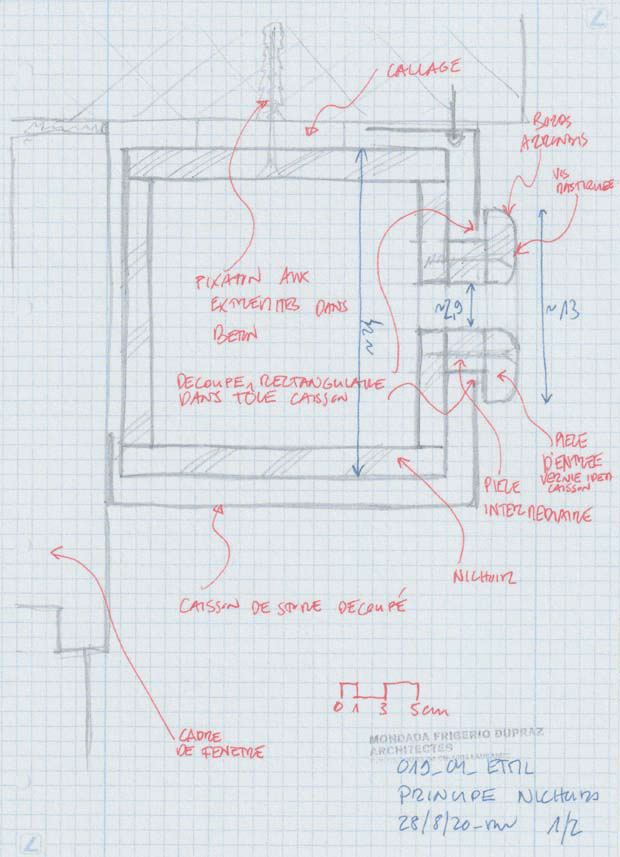 CALLAGE
BORDS
ARRONDIS
VIS
MASTIQUÉE
FIXATION AUX
EXTREMITES DANS
BETON
~2,9
~13
~24
DECOUPE RECTANGULAIRE
DANS TOLE CAISSON
PIECE
D'ENTREE
VERNIE IDEM
CAISSON
PIECE
INTERMEDIAIRE
NICHOIR
CAISSON DE STORE DECOUPÉ
0 1 3 5cm
CADRE
DE FENETRE
MONDADA FRIGERIO DUPRAZ
ARCHITECTES
PRINCIPE NICHOIRS
28/8/20
1/2